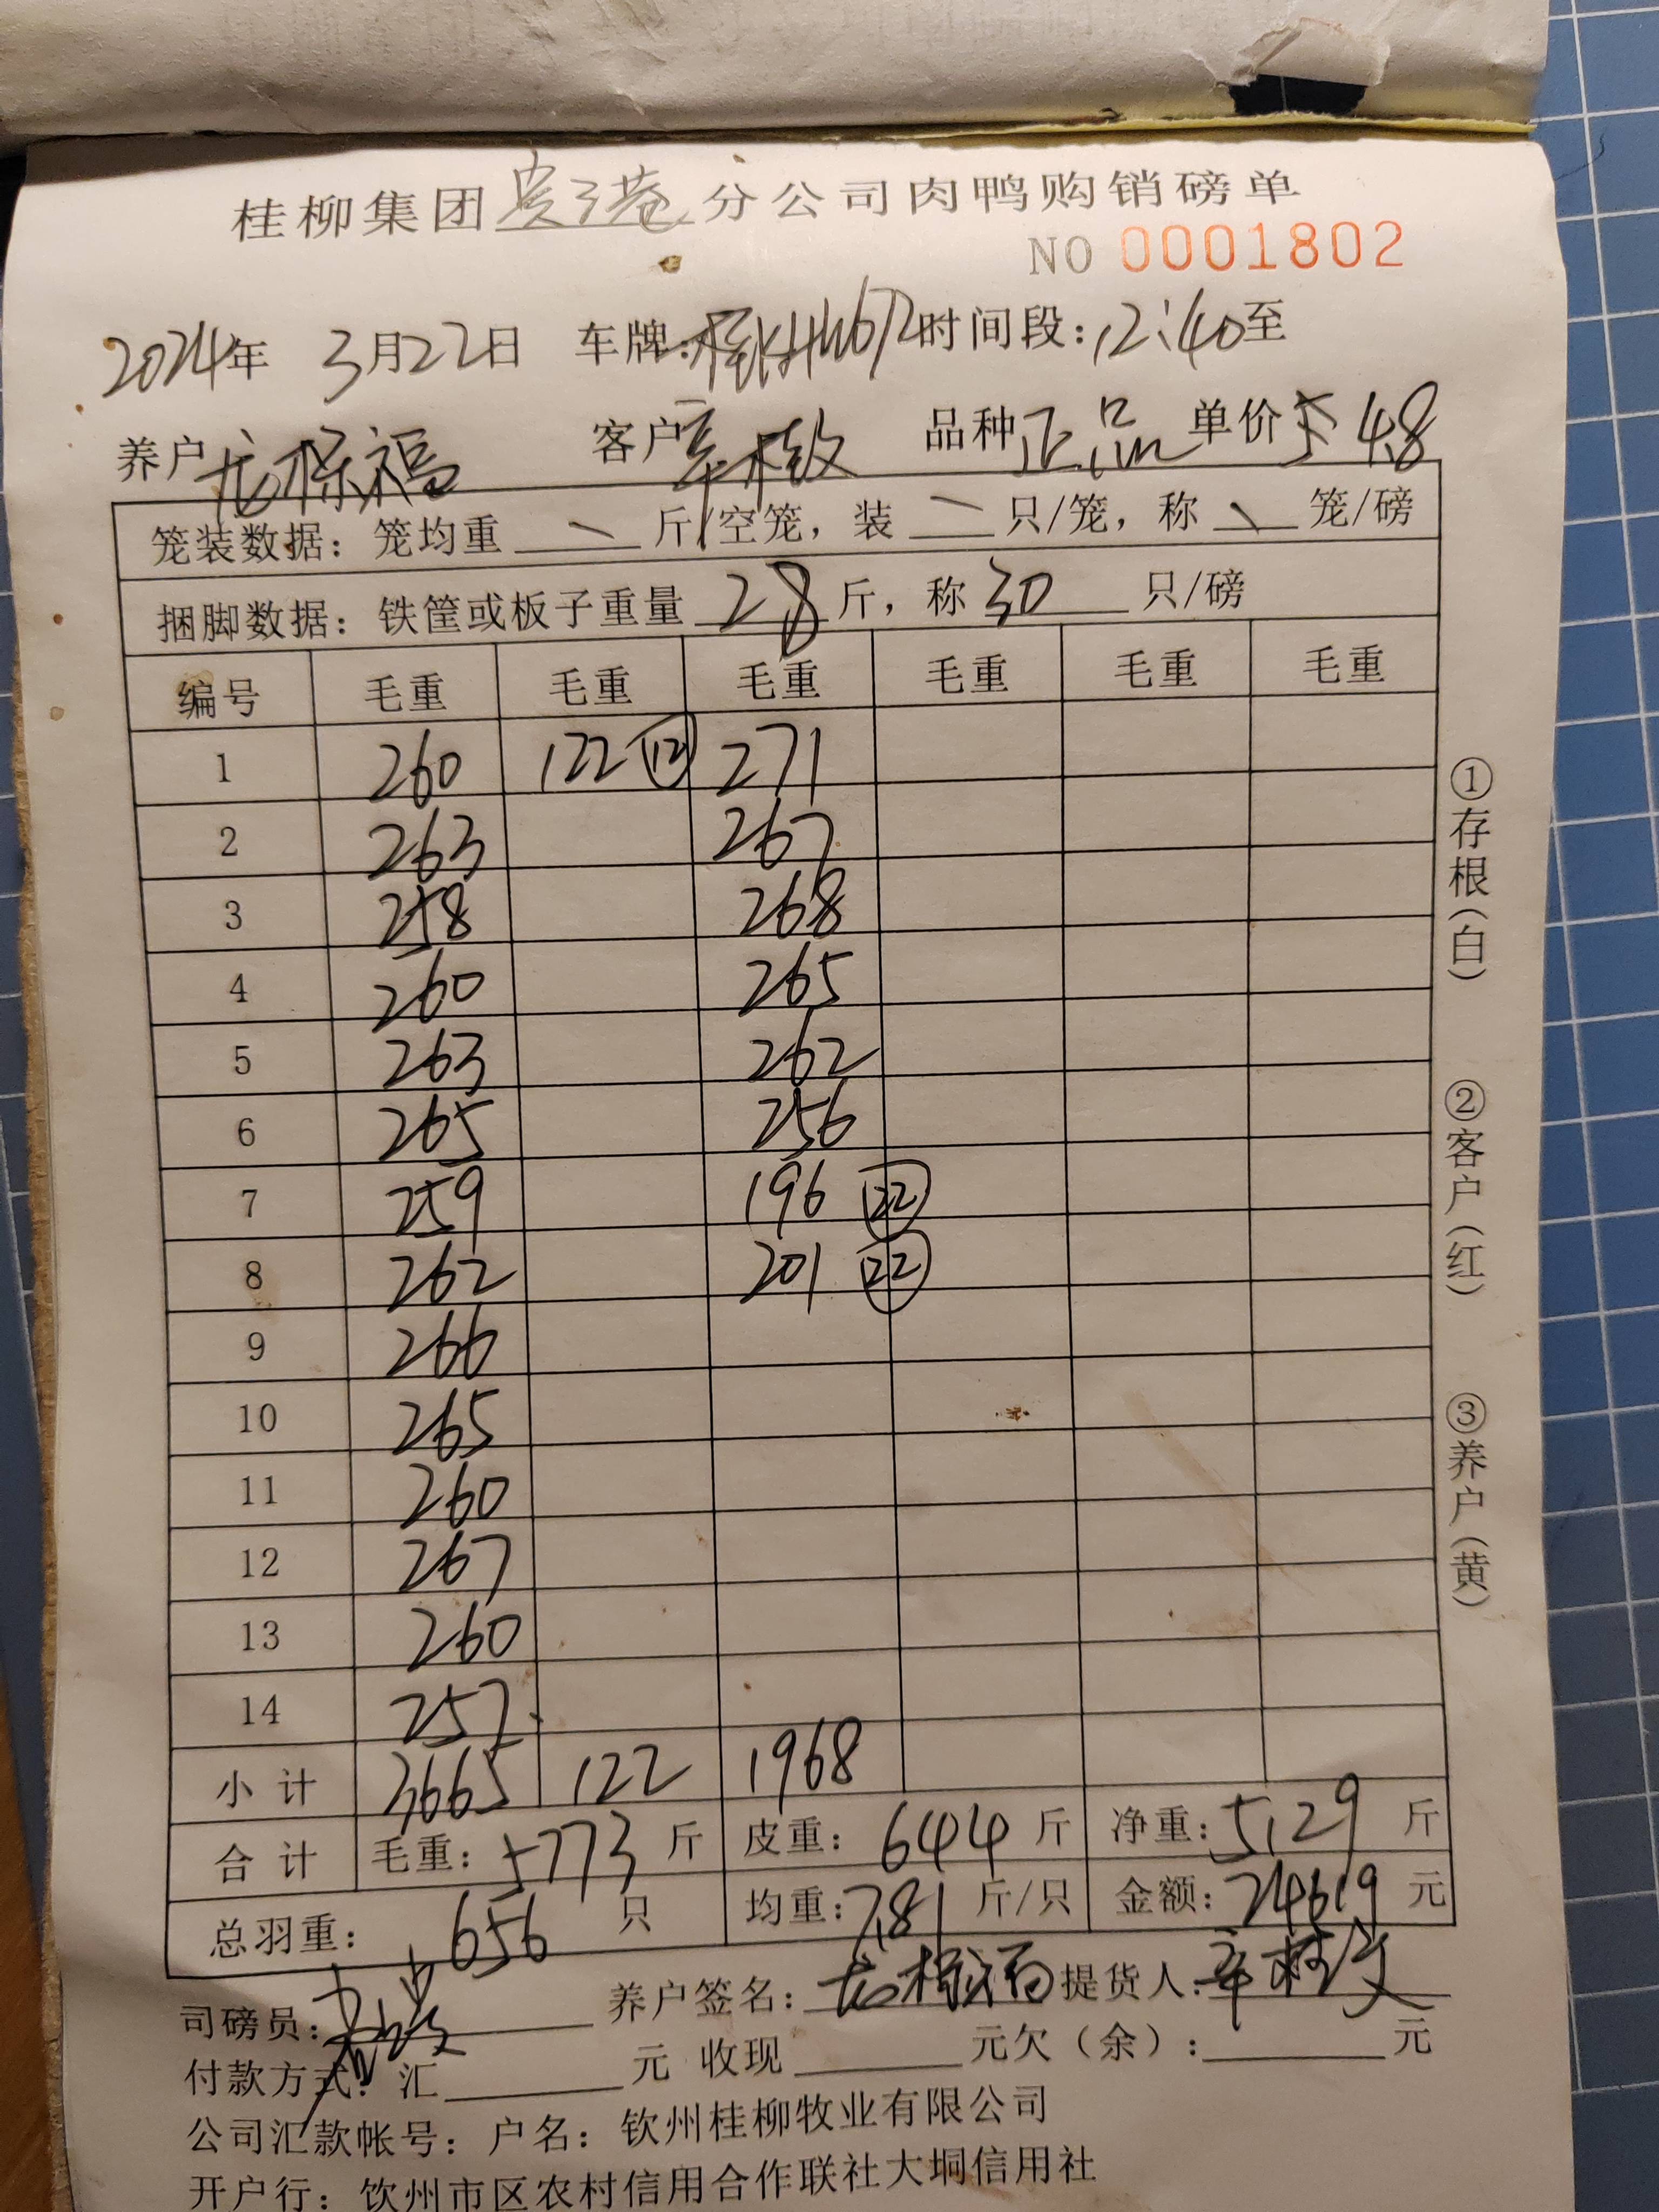 桂柳集团贵港分公司肉鸭购销磅单
NO 0001802
2024年 3月22日 车牌: 时间段:12:40至
养户 龙保福 客户 辛桂文 品种 正品 单价 4.8
笼装数据: 笼均重 斤/空笼, 装 只/笼, 称 笼/磅
捆脚数据: 铁筐或板子重量 28 斤, 称 30 只/磅
编号 毛重 毛重 毛重 毛重 毛重 毛重
1 260 122 ⑫ 271
2 263 267
3 258 268
4 260 265
5 263 262
6 265 256
7 259 196 ㉒
8 262 201 ㉒
9 266
10 265
11 260
12 267
13 260
14 257
小计 3665 122 1968
合计 毛重: 5773 斤 皮重: 644 斤 净重: 5129 斤
总羽重: 656 只 均重: 7.81 斤/只 金额: 24619 元
司磅员: 养户签名: 龙保福 提货人: 辛桂文
付款方式: 汇 元 收现 元欠(余): 元
公司汇款帐号: 户名: 钦州桂柳牧业有限公司
开户行: 钦州市区农村信用合作联社大垌信用社
①存根(白)
②客户(红)
③养户(黄)